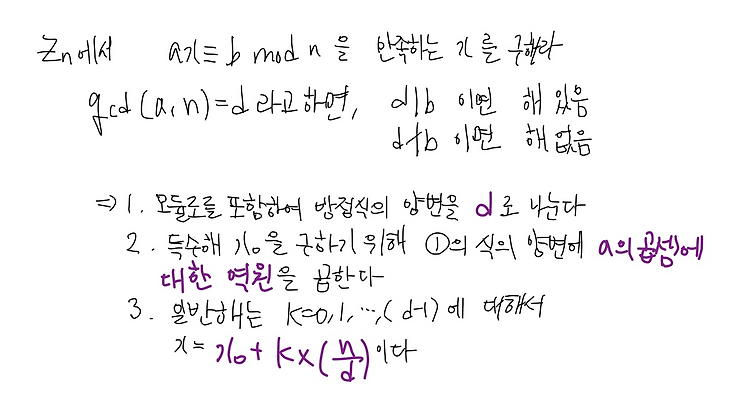 Zn에서 ax ≡ b mod n 을 만족하는 x 를 구해라
gcd(a, n) = d 라고 하면, d|b 이면 해 있음
d∤b 이면 해 없음
⇒ 1. 모듈로를 포함하여 방정식의 양변을 d로 나눈다
2. 특수해 x₀을 구하기 위해 ①의 식의 양변에 a의 곱셈에
대한 역원을 곱한다
3. 일반해는 k=0, 1, ⋯, (d-1) 에 대해서
x = x₀ + k × (n/d) 이다